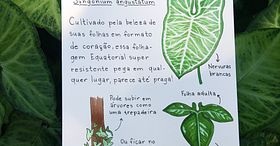 Syngonium angustatum
Cultivado pela beleza de
suas folhas em formato
de coração, essa folha-
gem Equatorial super
resistente pega em qual-
quer lugar, parece até praga!
Nervuras
brancas
Pode subir em
árvores como uma
trepadeira
Folha adulta
Ou ficar no